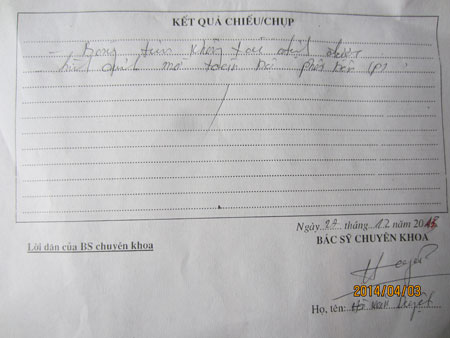 KẾT QUẢ CHIẾU/CHỤP
- Bóng tim không to
- hình ảnh mờ toàn bộ phổi bên (P)
Ngày 27 tháng 12 năm 2013
Lời dặn của BS chuyên khoa
BÁC SỸ CHUYÊN KHOA
2014/04/03
Họ, tên: